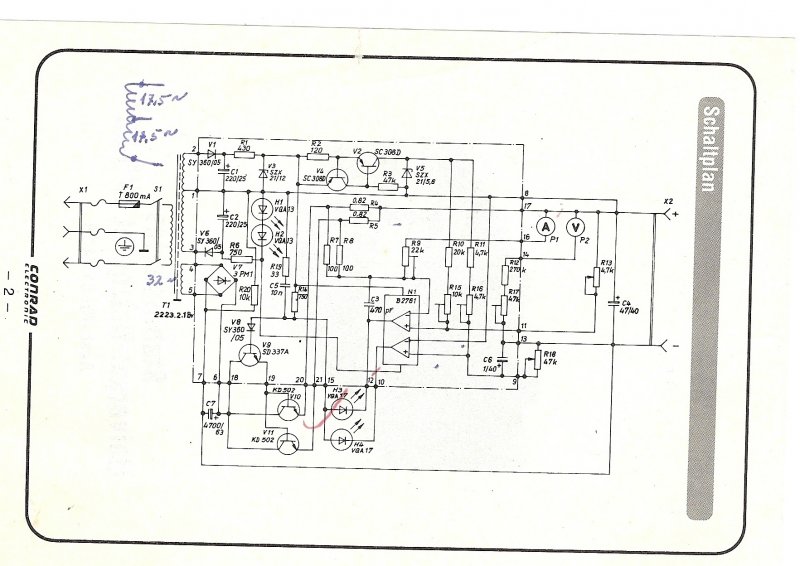 Schaltplan
17,5 ~
17,5 ~
32 ~
X1
F1
T 800 mA
S1
T1
2
1
3
4
5
V1
SY 360/05
R1
430
C1
220/25
C2
220/25
V3
SZX
21/12
R2
120
V2
SC308D
V4
SC308D
R3
47k
V5
SZX
21/5,6
H1
VQA13
H2
VQA13
V6
SY360/05
R6
750
V7
PM1
R20
10k
V8
SY360
/05
V9
SD337A
R19
33
C5
10n
R14
750
0,82
R4
0,82
R5
R7
R8
100
100
R9
22k
C3
470
pF
N1
B2761
R10
20k
R11
4,7k
R15
10k
R16
4,7k
R12
270k
R17
47k
C6
1/40
R18
47k
R13
4,7k
C4
47/40
8
17
16
14
11
13
9
A
P1
V
P2
X2
+
-
7
6
18
19
20
21
15
12
10
C7
4700/
63
KD502
V10
V11
KD502
H3
VQA17
H4
VQA17
CONRAD
ELECTRONIC
- 2 -